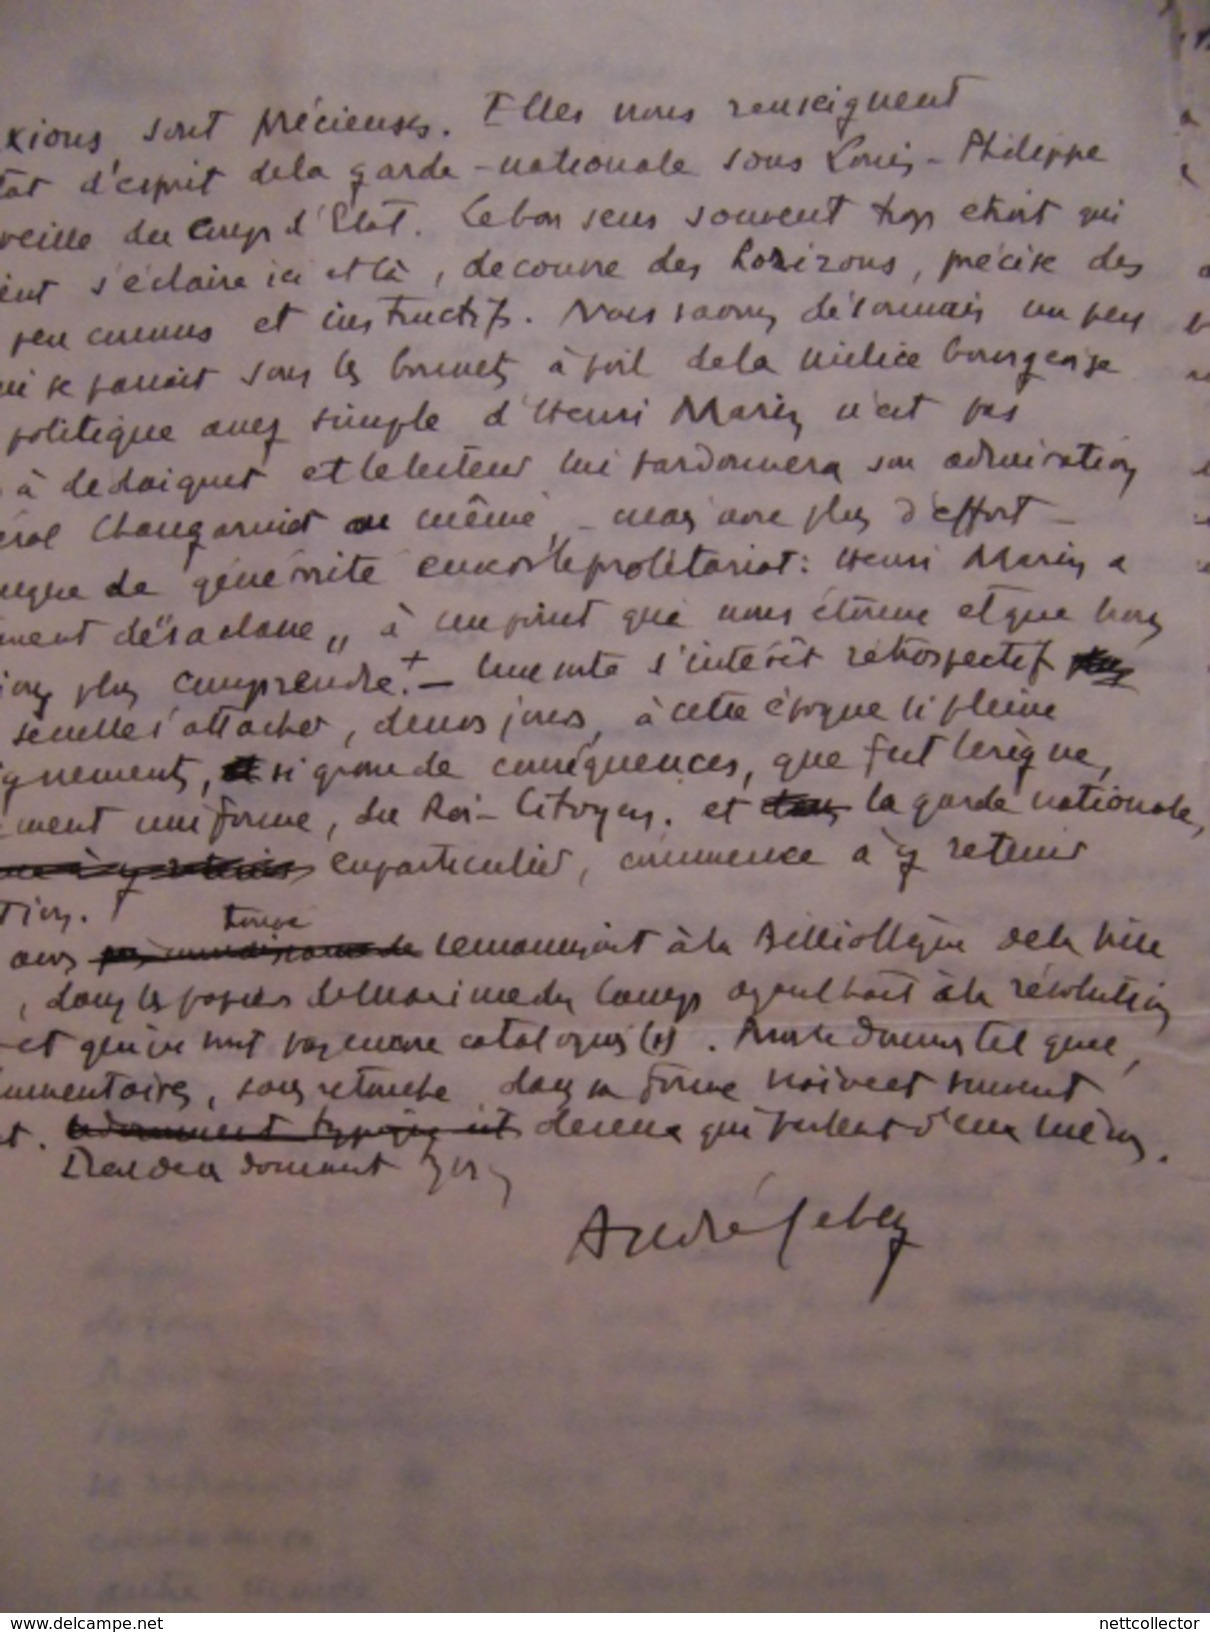 xions sont précieuses. Elles nous renseignent
tat d'esprit de la garde-nationale sous Louis-Philippe
veille du Coup d'Etat. Le bon sens souvent trop étroit qui
ient s'éclaire ici et là, découvre des horizons, précise des
peu connus et instructifs. Nous savons désormais un peu
ui se passait sous les bonnets à poil de la milice bourgeoise
politique assez simple d'Henri Marin n'est pas
à dédaigner et le lecteur lui pardonnera son admiration
éral Changarnier même, mais avec plus d'effort -
nque de générosité envers le prolétariat: Henri Marin a
ment désaclone, à un point qui nous étonne et que nous
ions plus comprendre.+ - Une note s'intérêt rétrospectif
semble s'attacher, de nos jours, à cette époque si pleine
ignements, si grande conséquences, que fut le règne,
ment uniforme, du Roi-Citoyen. et la garde nationale,
en particulier, commence à y retenir
tion.
trouvé
avons le manuscrit à la Bibliothèque de la Ville
, dans les papiers de Maxime du Camp ayant trait à la révolution
et qui ne sont pas encore catalogués (1). Nous le donnons tel quel,
ommentaires, sans retouche dans sa forme naïve et souvent
t. de ceux qui parlent d'eux mêmes.
document
André Lebey
delcampe.net
nettcollector